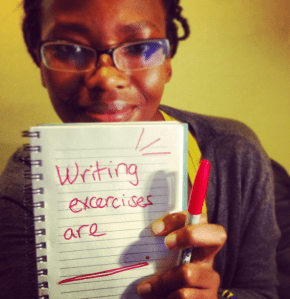 Writing
excercises
are